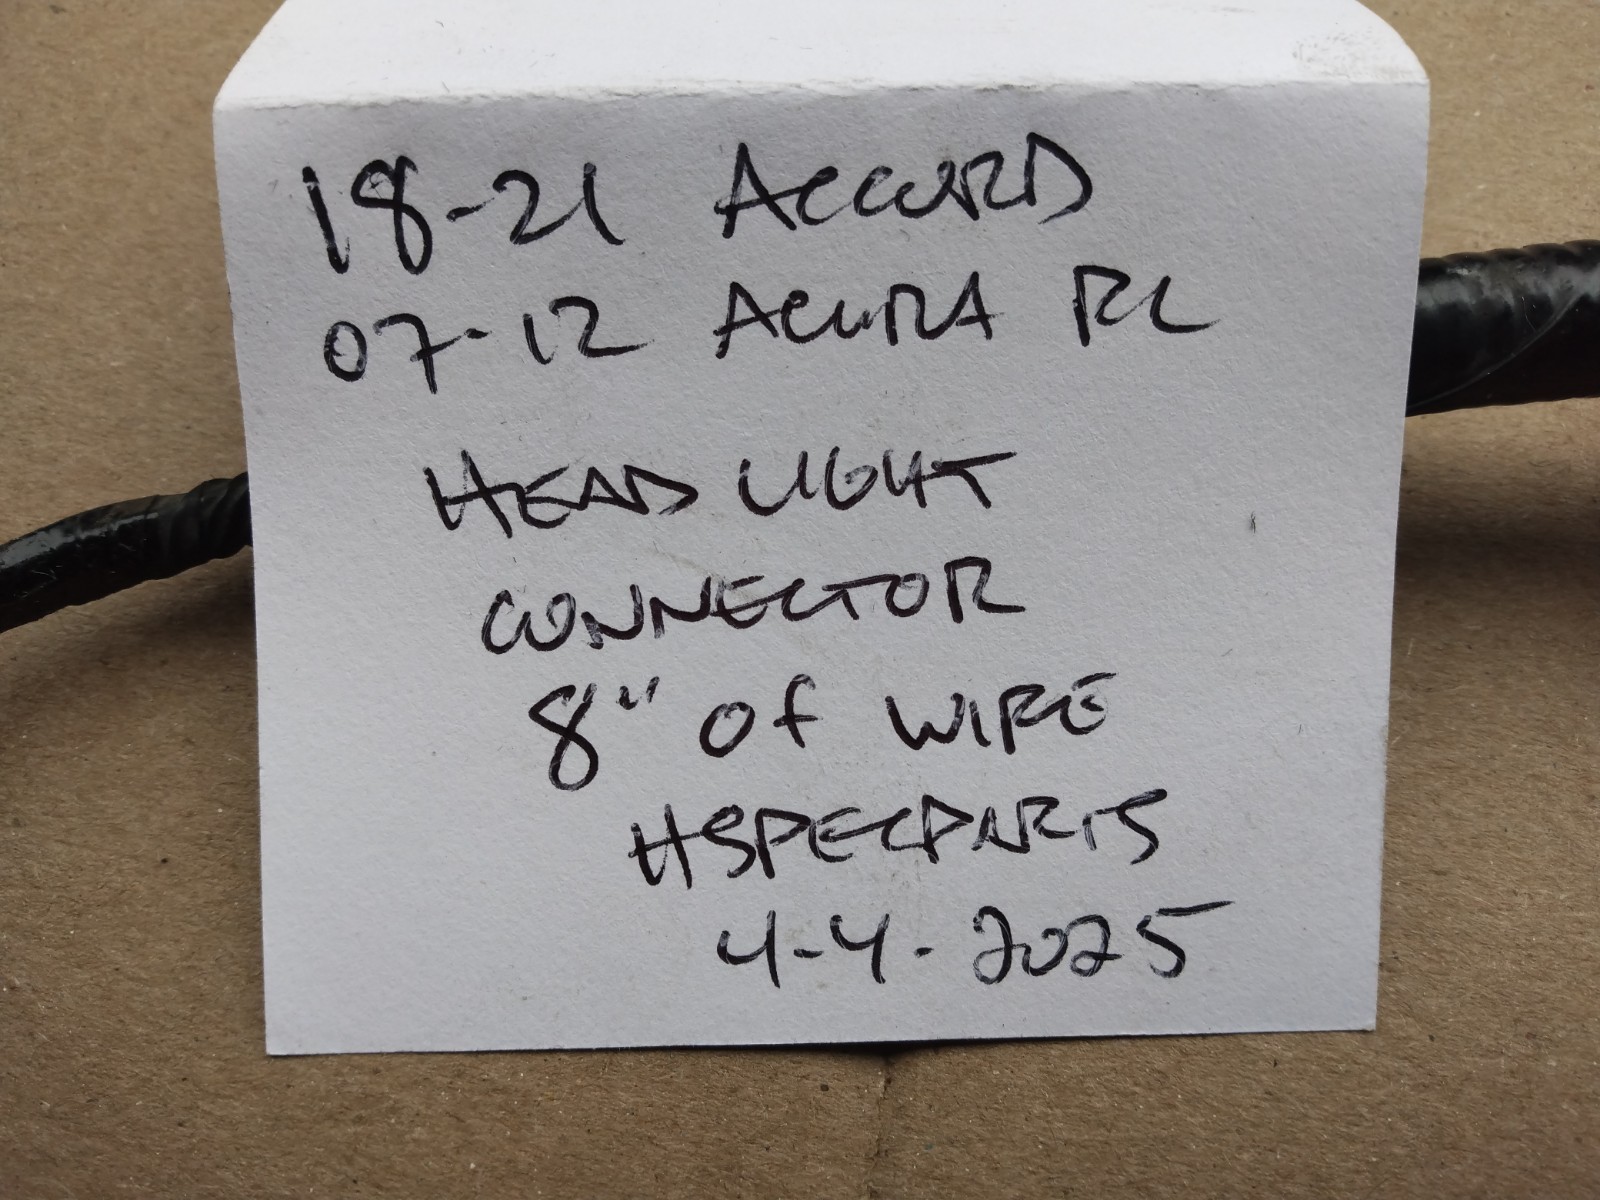 18-21 ACCORD
07-12 ACURA RL
HEAD LIGHT
CONNECTOR
8" OF WIRE
HSPECPARTS
4-4-2025